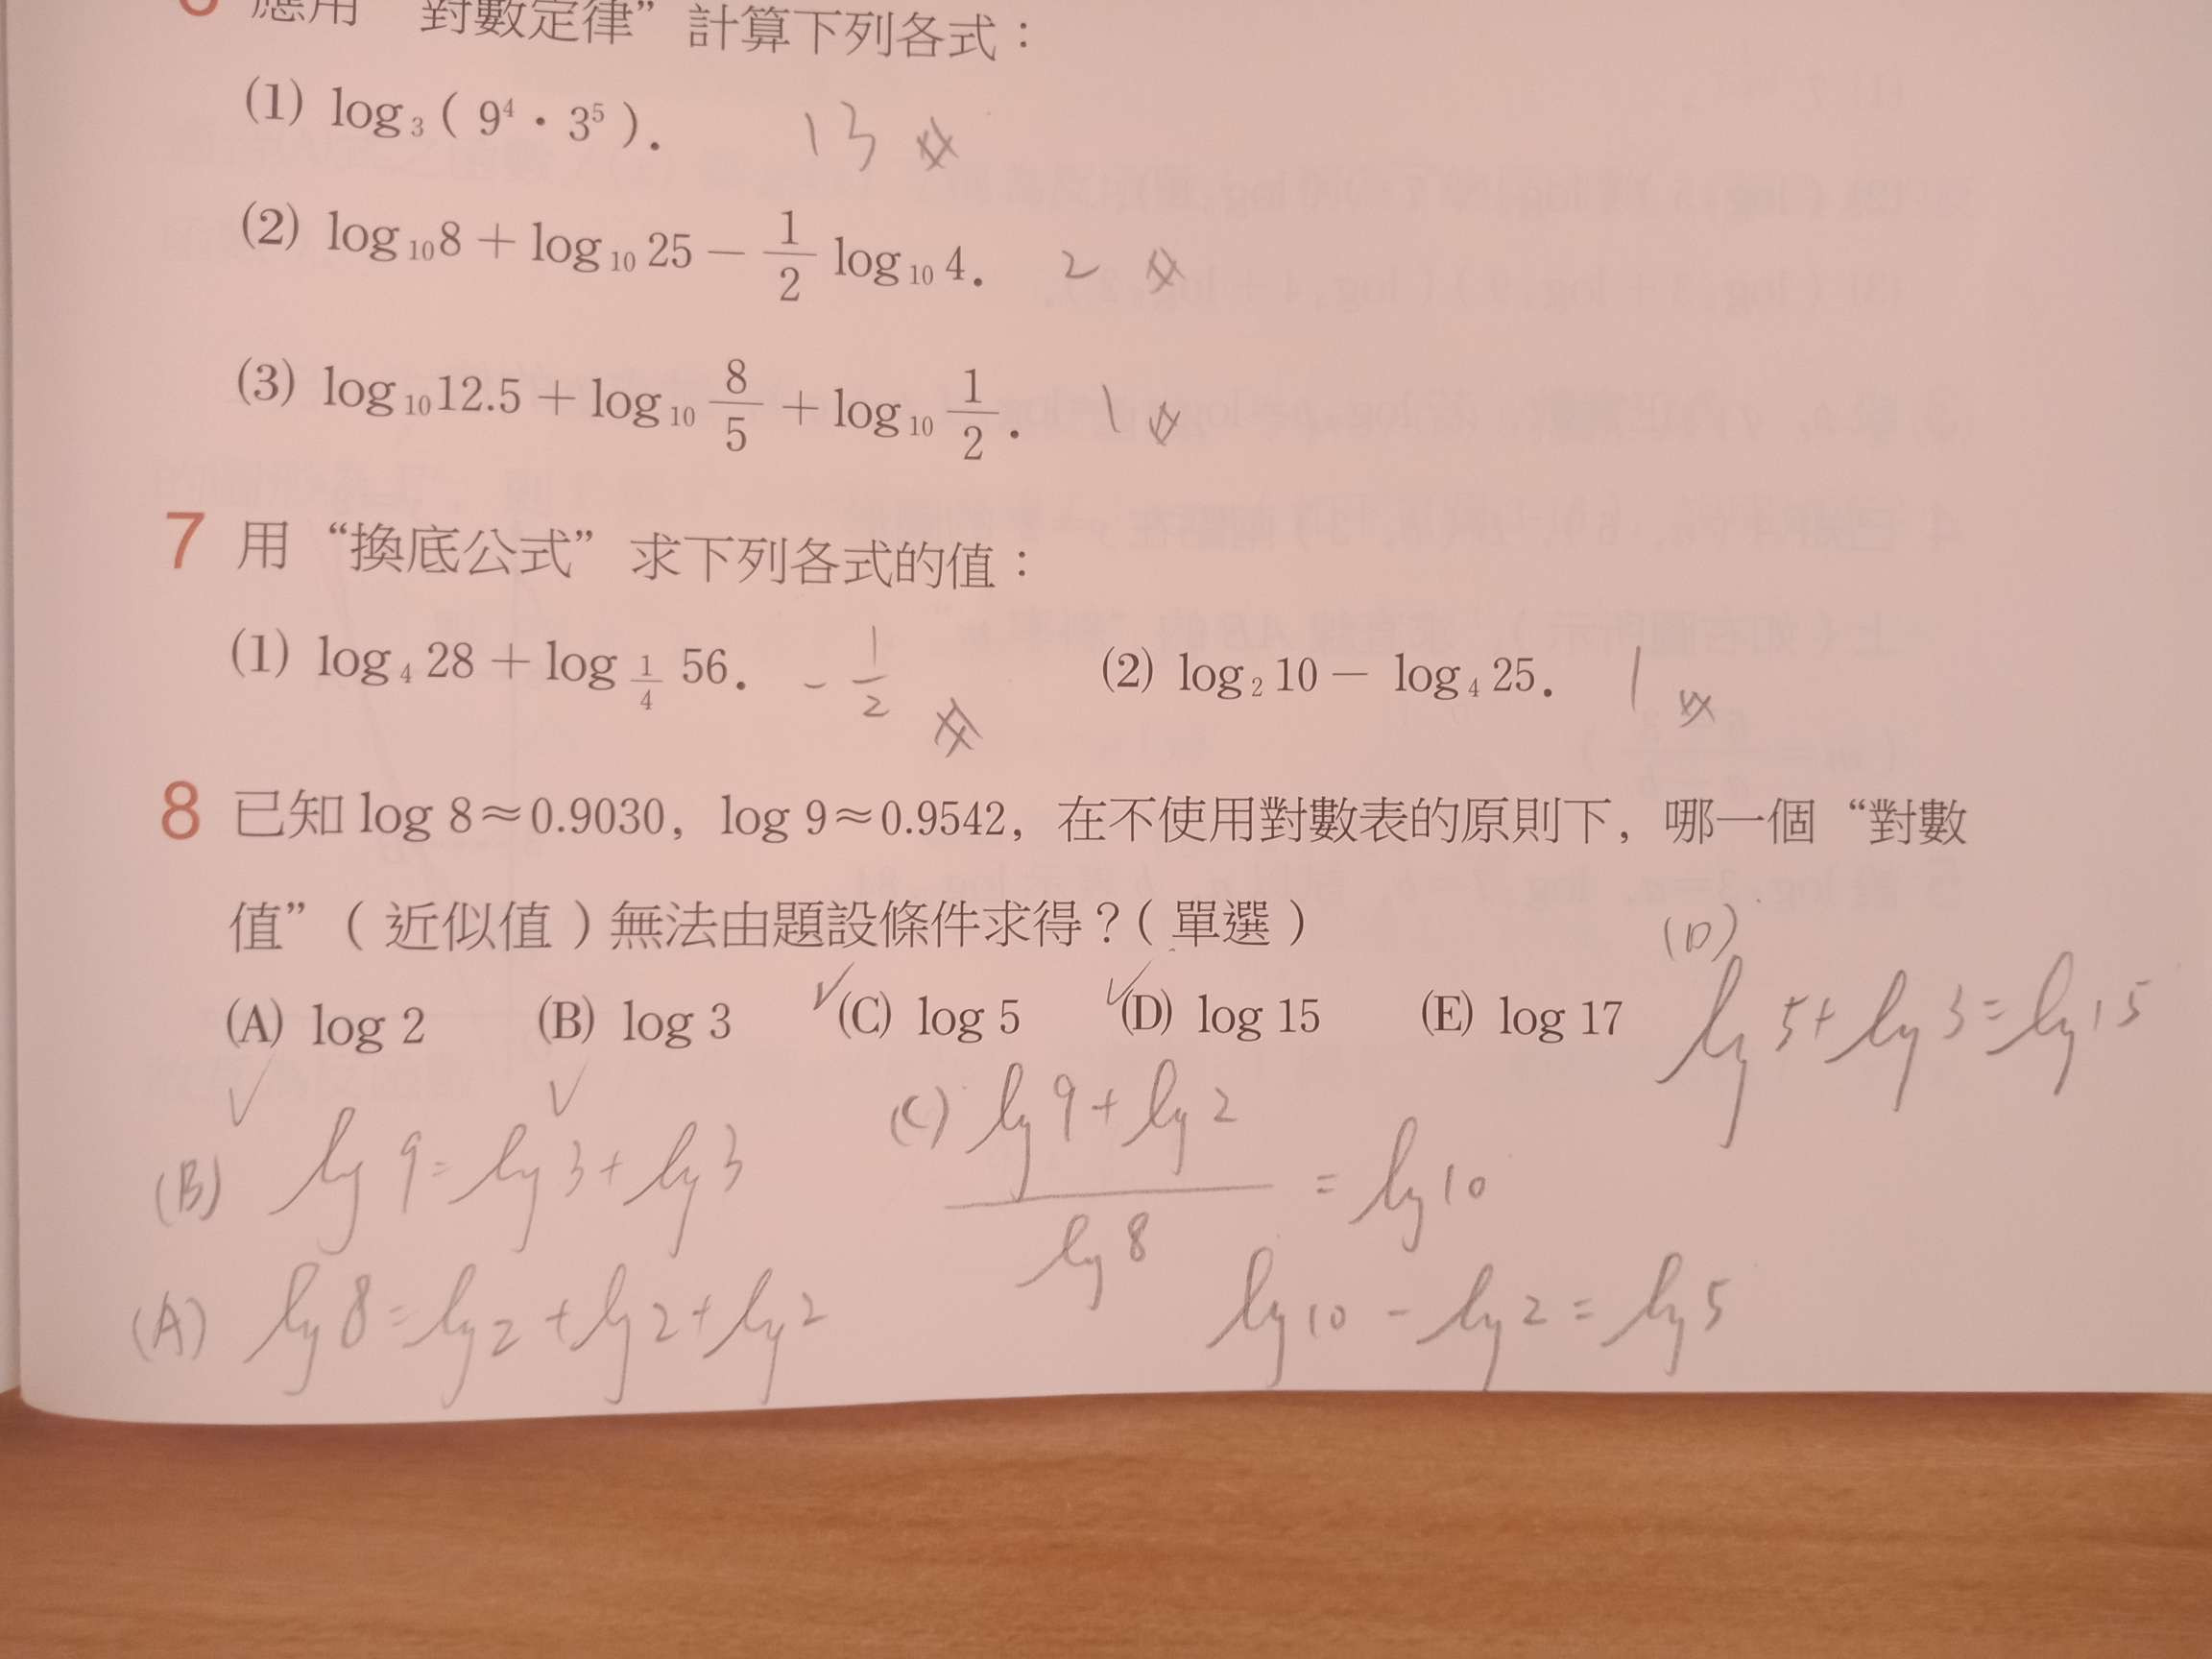 6 應用“對數定律”計算下列各式：
(1) log₃ ( 9⁴ · 3⁵ ). 13
(2) log₁₀ 8 + log₁₀ 25 − 1/2 log₁₀ 4. 2
(3) log₁₀ 12.5 + log₁₀ 8/5 + log₁₀ 1/2. 1
7 用“換底公式”求下列各式的值：
(1) log₄ 28 + log_{1/4} 56. −1/2 (2) log₂ 10 − log₄ 25. 1
8 已知 log 8≈0.9030, log 9≈0.9542, 在不使用對數表的原則下, 哪一個“對數
值”（近似值）無法由題設條件求得？（單選）
(A) log 2 (B) log 3 (C) log 5 (D) log 15 (E) log 17
(D) log 5 + log 3 = log 15
(C) (log 9 + log 2) / log 8 = log 10
(B) log 9 = log 3 + log 3
log 10 − log 2 = log 5
(A) log 8 = log 2 + log 2 + log 2